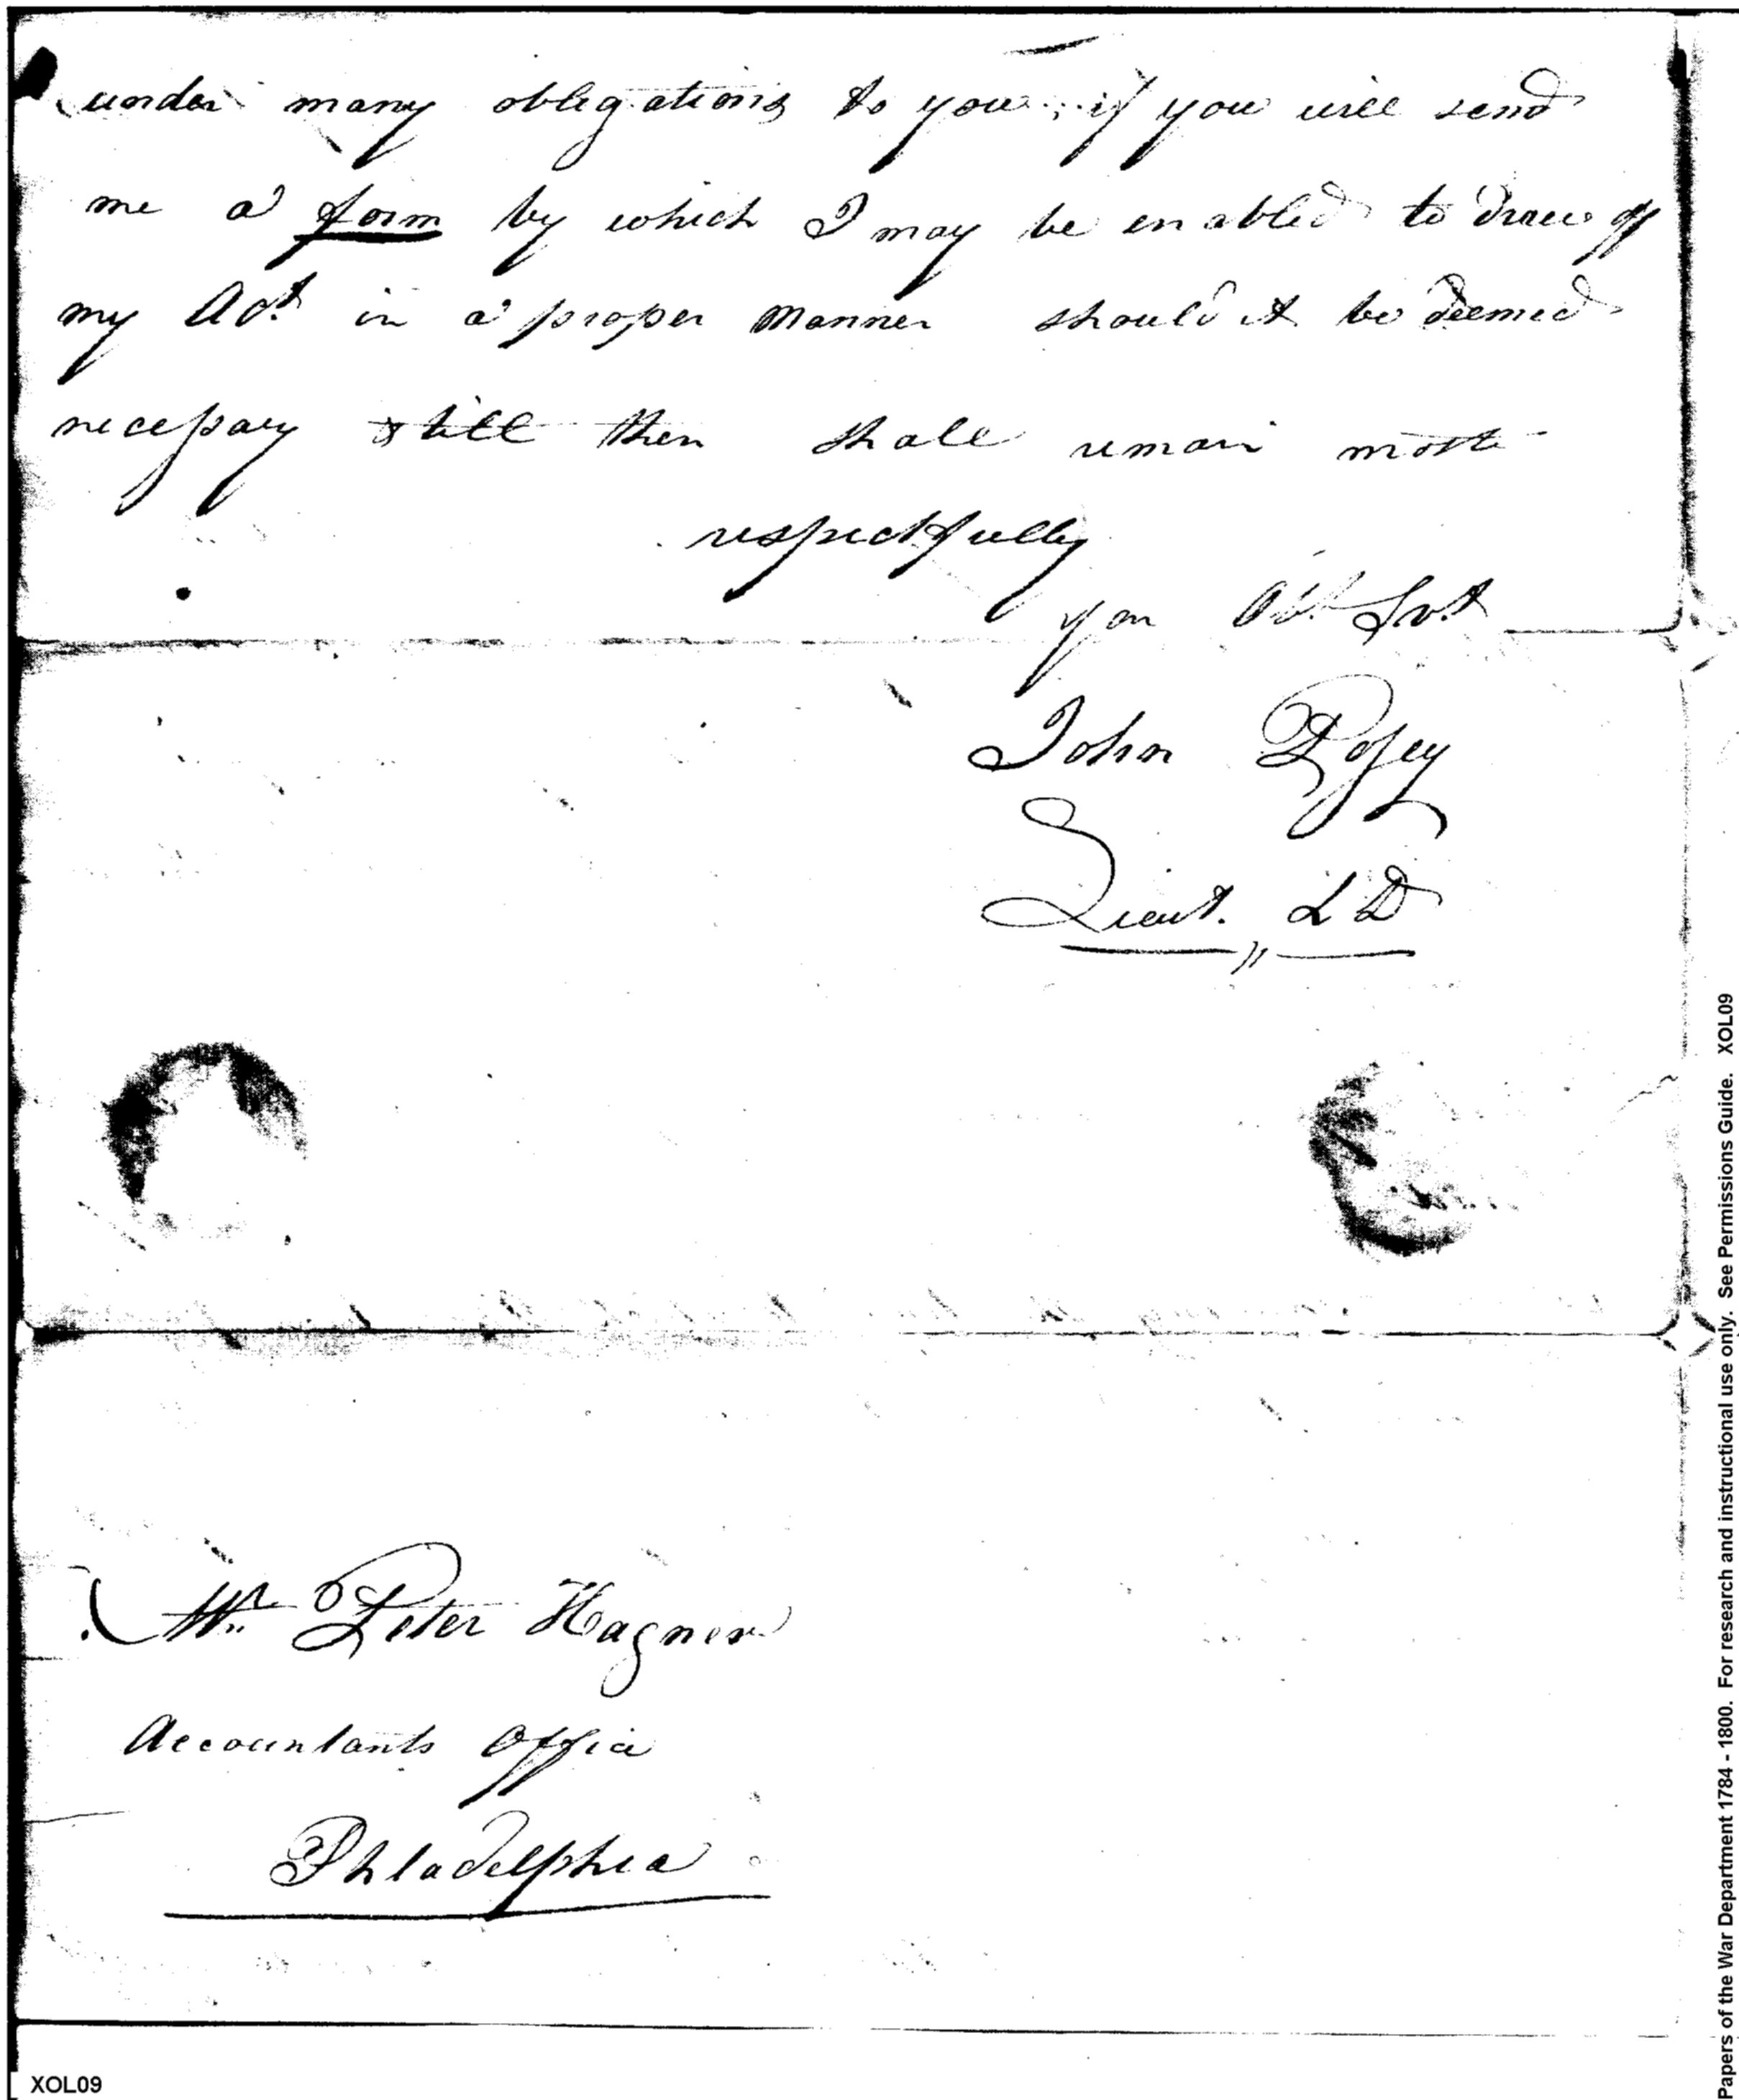 under many obligations to you; if you will send
me a form by which I may be enabled to draw off
my Act. in a proper manner should it be deemed
necessary still then shall remain most
respectfully
your Obt. Svt
John Posey
Lieut. LD
Mr. Peter Hagner
Accountants Office
Philadelphia
Papers of the War Department 1784 - 1800. For research and instructional use only. See Permissions Guide. XOL09
XOL09